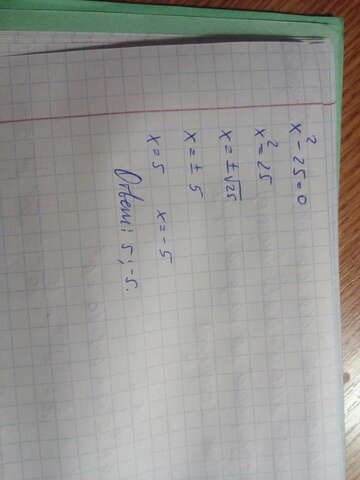 x² - 25 = 0
x² = 25
x = ±√25
x = ± 5
x = 5 x = - 5
Ответ: 5; -5.